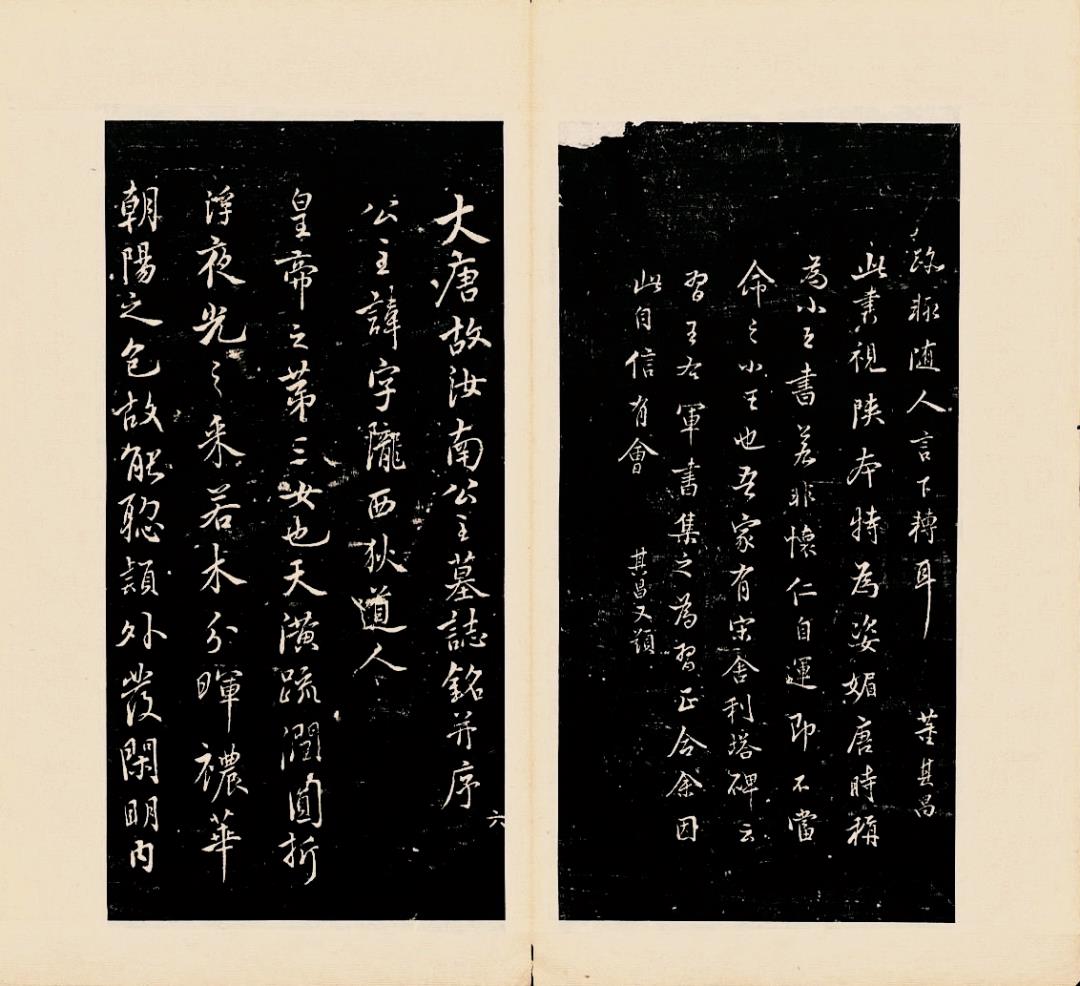 跋聊随人言下轉耳 董其昌
此書視陝本特為姿媚唐時稱
為小王書若非懷仁自運即不當
命之小王也吾家有宋舍利塔碑云
習王右軍書集之為習正合余因
此自信有會 其昌又題
六
大唐故汝南公主墓誌銘并序
公主諱字隴西狄道人
皇帝之第三女也天潢疏潤圓折
浮夜光之采若木分暉禯華
朝陽之色故能聰穎外發閑明内